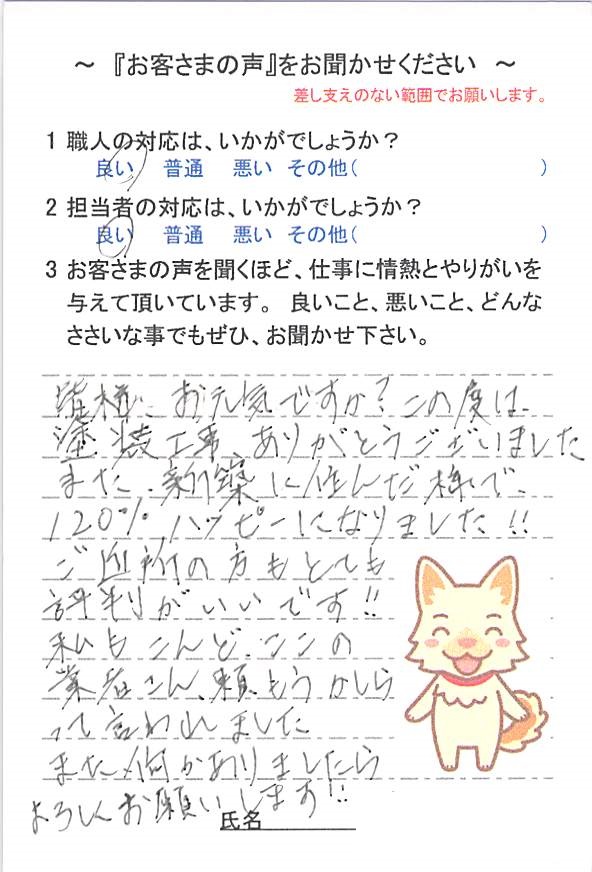 ～ 『お客さまの声』をお聞かせください ～
差し支えのない範囲でお願いします。
1 職人の対応は、いかがでしょうか？
良い 普通 悪い その他( )
2 担当者の対応は、いかがでしょうか？
良い 普通 悪い その他( )
3 お客さまの声を聞くほど、仕事に情熱とやりがいを
与えて頂いています。 良いこと、悪いこと、どんな
ささいな事でもぜひ、お聞かせ下さい。
皆様、お元気ですか？この度は、
塗装工事、ありがとうございました
また、新築に住んだ様で、
120%ハッピーになりました!!
ご近所の方もとても
評判がいいです!!
私もこんど、ここの
業者さん、頼もうかしら
って言われました
また何かありましたら
よろしくお願いします!!
氏名